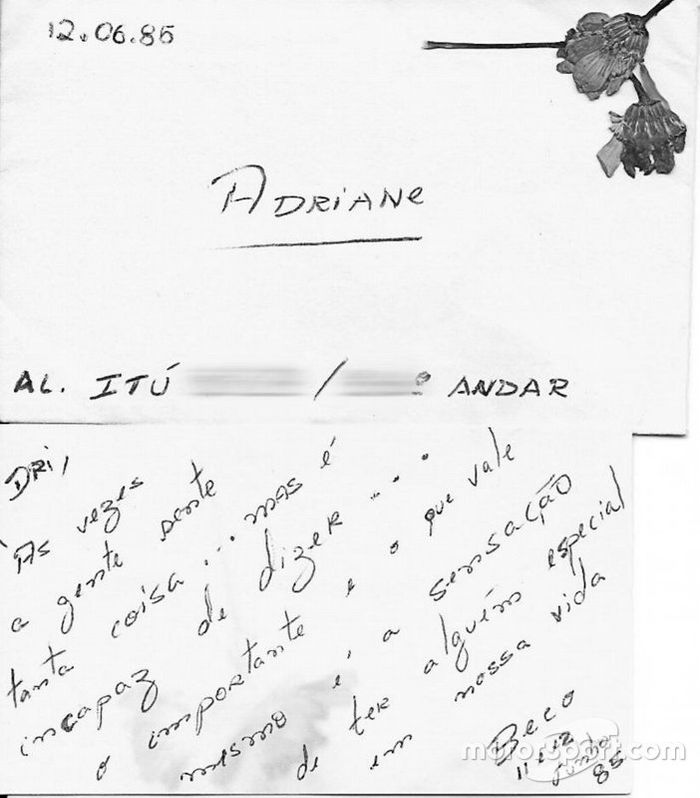 12.06.85
ADRiANe
AL. ITÚ / º ANDAR
DRi,
As vezes
a gente sente
tanta coisa... mas é
incapaz de dizer...
o importante e o que vale
mesmo é, a sensação
de ter alguém especial
em nossa vida
Beco
11 e 12
junho
85
motorsport.com